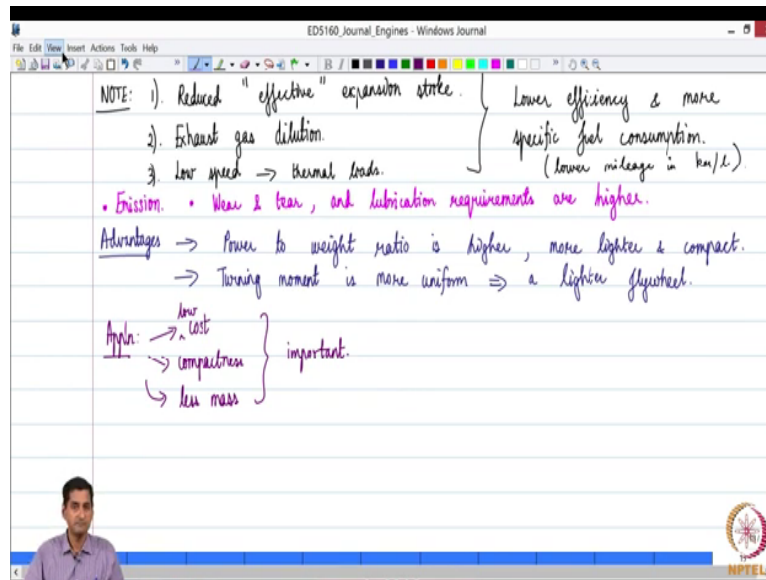 ED5160_Journal_Engines - Windows Journal
File Edit View Insert Actions Tools Help
B I
NOTE: 1). Reduced "effective" expansion stroke.
2). Exhaust gas dilution.
3). Low speed → thermal loads.
Lower efficiency & more
specific fuel consumption.
(lower mileage in km/l).
• Emission. • Wear & tear, and lubrication requirements are higher.
Advantages → Power to weight ratio is higher, more lighter & compact.
→ Turning moment is more uniform ⇒ a lighter flywheel.
Appln: → low cost
→ compactness
→ less mass
important.
NPTEL